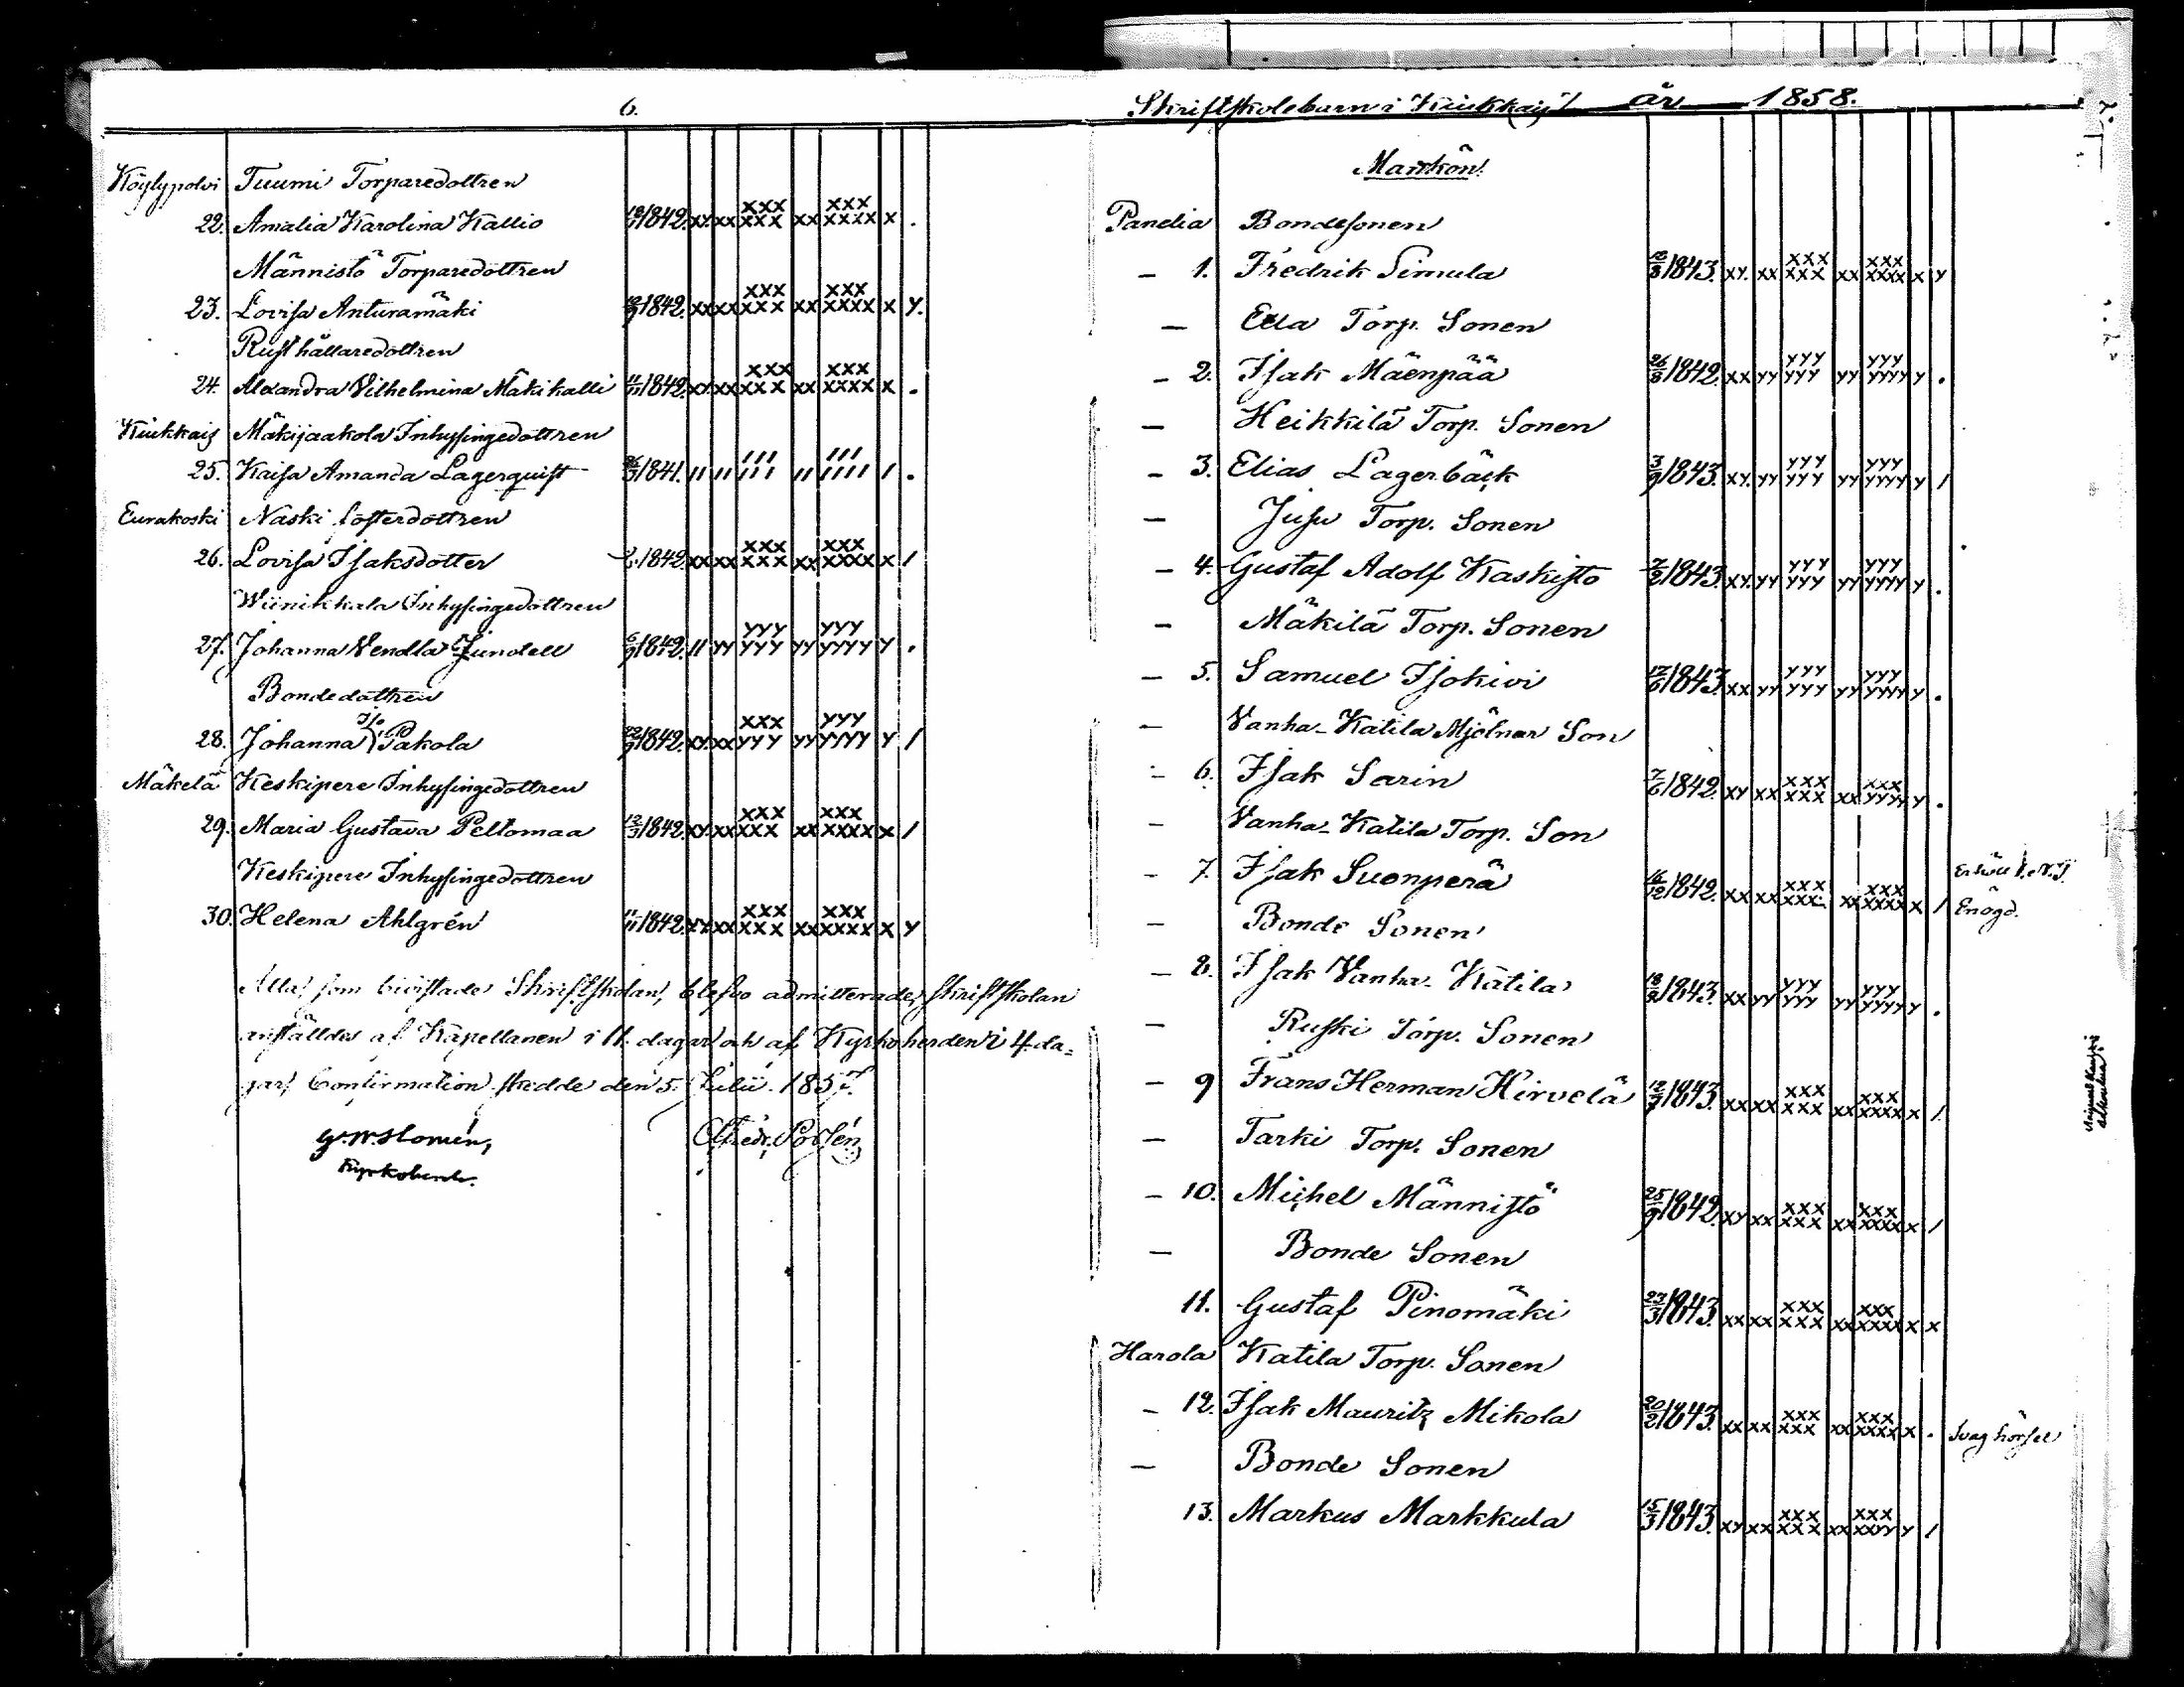 6.
Köylypolvi Tuumi Torparedottren
22. Amalia Karolina Kallio 1842. xx xx xxx xxx xx xxx xxxx x .
Männistö Torparedottren
23. Lovisa Anturamäki 1842. xx xx xxx xxx xx xxx xxxx x y.
Rusthållaredottren
24. Alexandra Vilhelmina Mäkikalli 1842. xx xx xxx xxx xx xxx xxxx x .
Kiukkais Mäkijaakola Inhysingedottren
25. Kaisa Amanda Lagerquist 26/3 1841. // // /// /// // /// //// / .
Eurakoski Naski Losterdottren
26. Lovisa Isaksdotter 1842. xx xx xxx xxx xx xxx xxxx x /
Wiinikkala Inhysingedottren
27. Johanna Vendla Jundell 6/9 1842. // yy yyy yyy yy yyy yyyy y .
Bondedottren
28. Johanna Iso Pakola 22/9 1842. xx xx xxx yyy yy yyy yyyy y /
Mäkelä Keskipere Inhysingedottren
29. Maria Gustava Peltomaa 12/3 1842. xx xx xxx xxx xx xxx xxxx x /
Keskipere Inhysingedottren
30. Helena Ahlgrén 1842. xx xx xxx xxx xx xxx xxxx x y
Alla, som bivistade Skriftskolan, blefvo admitterade, skriftskolan
anställdes af Kapellanen i 11. dagar och af Kyrkoherden i 4. da=
gar, Confirmation skedde den 5. Julii. 1857.
G. W. Slomén, Fredr.
Kyrkoherde.
Skriftskolebarn i Kiukkais år 1858.
Mankön.
Panelia Bondesonen
– 1. Fredrik Simula 1843. xy. xx xxx xxx xx xxx xxxx x y
— Eela Torp. Sonen
– 2. Isak Mäenpää 26/8 1842. xx yy yyy yyy yy yyy yyyy y .
— Heikkilä Torp. Sonen
– 3. Elias Lagerbäck 3/9 1843. xy. yy yyy yyy yy yyy yyyy y /
— Jusu Torp. Sonen
– 4. Gustaf Adolf Kaskisto 7/2 1843. xy. yy yyy yyy yy yyy yyyy y .
– Mäkilä Torp. Sonen
– 5. Samuel Isokivi 17/6 1843. xx yy yyy yyy yy yyy yyyy y .
— Vanha-Katila Mjölnar Son
– 6. Isak Sarin 7/6 1842. xy xx xxx xxx xx xxx yyyy y .
– Vanha-Katila Torp. Son
– 7. Isak Suonperä 16/12 1842. xx xx xxx xxx xx xxx xxxx x / Enögd.
– Bonde Sonen
– 8. Isak Vanha-Katila 18/9 1843. xx yy yyy yyy yy yyy yyyy y .
— Ruski Torp. Sonen
– 9 Frans Herman Hirvelä 1843. xx xx xxx xxx xx xxx xxxx x /.
— Tarki Torp. Sonen
– 10. Michel Männistö 25/9 1842. xy xx xxx xxx xx xxx xxxx x /
— Bonde Sonen
11. Gustaf Pinomäki 23/3 1843. xx xx xxx xxx xx xxx xxxx x x
Harola Katila Torp. Sonen
– 12. Isak Mauritz Mikola 20/2 1843. xx xx xxx xxx xx xxx xxxx x . Svag hörsel
— Bonde Sonen
13. Markus Markkula 15/3 1843. xy xx xxx xxx xx xxx xxyy y /
7.